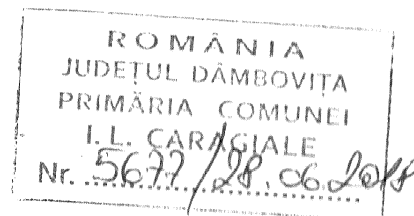 ROMÂNIA
JUDEȚUL DÂMBOVIȚA
PRIMĂRIA COMUNEI
I. L. CARAGIALE
Nr. 5677/28.06.2018